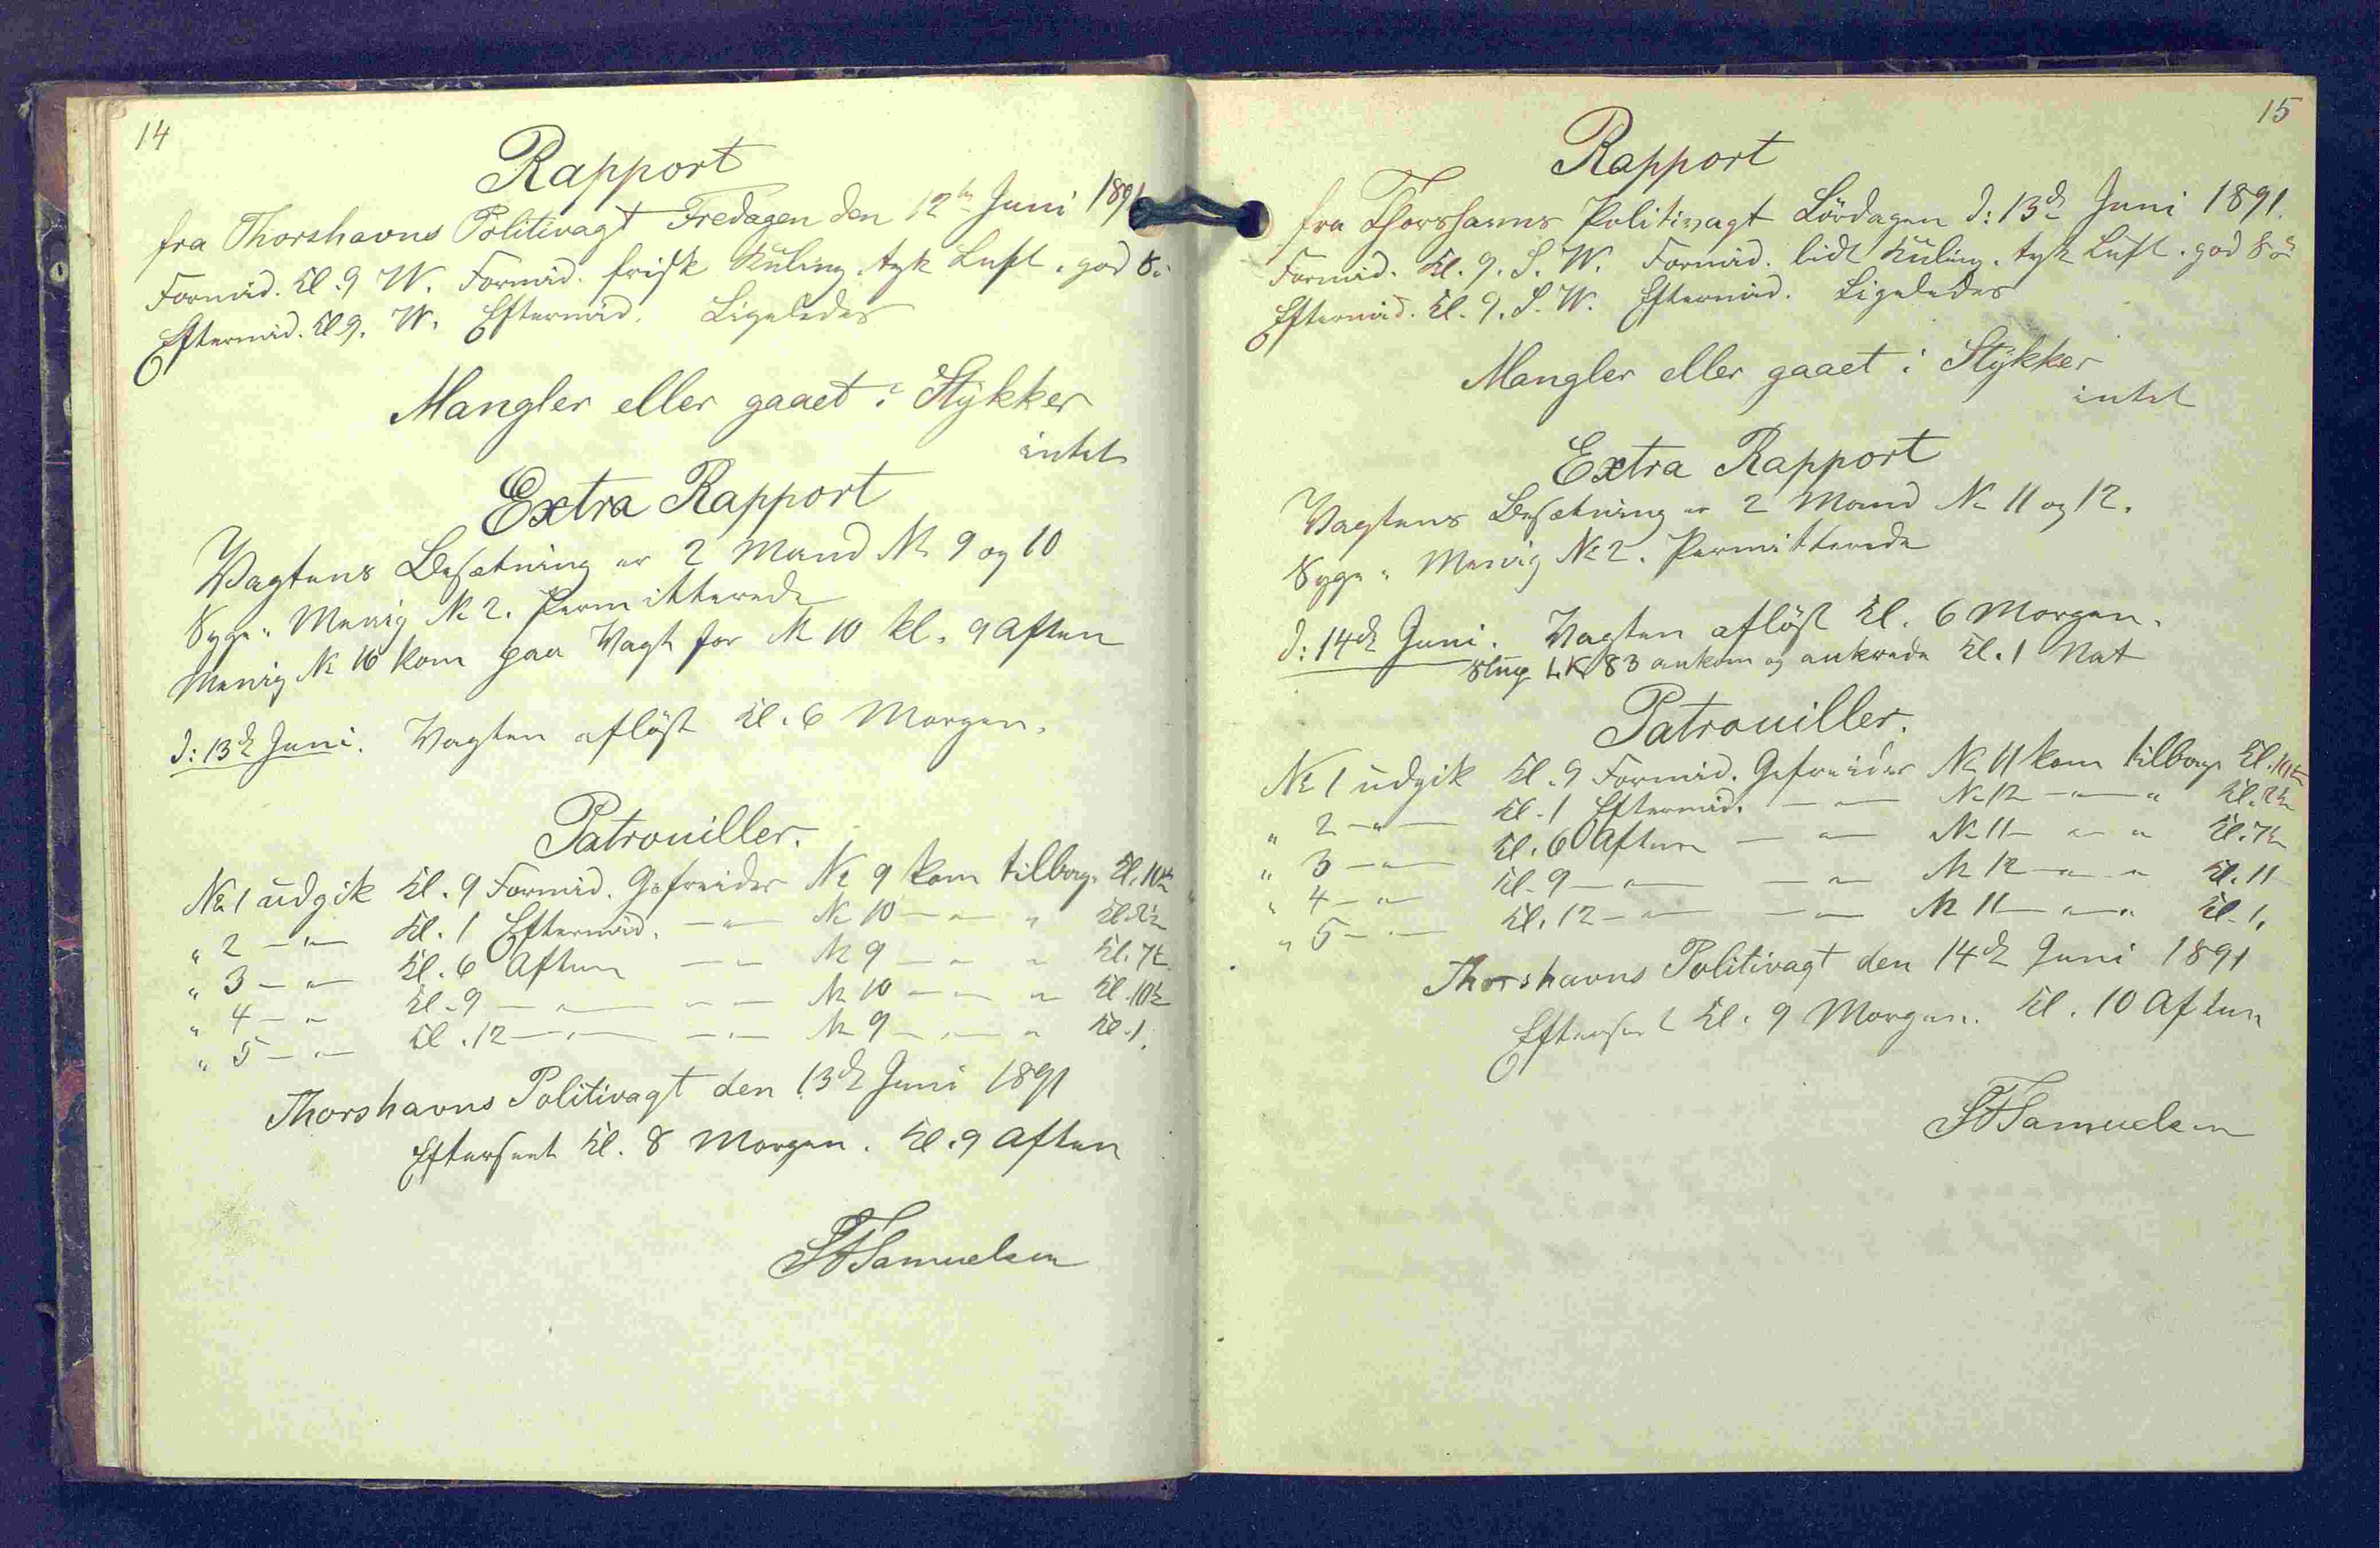 14
Rapport
fra Thorshavns Politivagt Fredagen den 12te Juni 1891
Formid. Kl. 9 W. Formid. frisk Kuling. tyk Luft. god
Eftermid. Kl 9. W. Eftermid. Ligeledes
Mangler eller gaaet i Stykker
intet
Extra Rapport
Vagtens Besætning er 2 Mand № 9 og 10
Syge " Menig № 2. Permitterede
Menig № 16 kom paa Vagt for № 10 kl. 9 Aften
d: 13de Juni. Vagten aflöst Kl. 6 Morgen.
Patrouiller.
№ 1 udgik Kl. 9 Formid. Gefreider № 9 kom tilbage Kl. 10½
" 2 — " — Kl. 1 Eftermid. — " — № 10 — " — " Kl. 2½
" 3 — " — Kl. 6 Aften — " — № 9 — " — " Kl. 7½
" 4 — " — Kl. 9 — " — — " — № 10 — " — " Kl. 10½
" 5 — " — Kl. 12 — " — — " — № 9 — " — " Kl. 1.
Thorshavns Politivagt den 13de Juni 1891
Efterseet Kl. 8 Morgen. Kl. 9 Aften
Samuelsen
15
Rapport
fra Thorshavns Politivagt Lördagen d: 13de Juni 1891.
Formid. Kl. 9. S. W. Formid. lidt Kuling. tyk Luft. god
Eftermid. Kl. 9. S. W. Eftermid. Ligeledes
Mangler eller gaaet i Stykker
intet
Extra Rapport
Vagtens Besætning er 2 Mand № 11 og 12.
Syge " Menig № 2. Permitterede
d: 14de Juni. Vagten aflöst Kl. 6 Morgen.
Slup LK 83 ankom og ankrede Kl. 1 Nat
Patrouiller.
№ 1 udgik Kl. 9 Formid. Gefreider № 11 kom tilbage Kl. 10½
" 2 — " — Kl. 1 Eftermid. — " — № 12 — " — " Kl. 2½
" 3 — " — Kl. 6 Aften — " — № 11 — " — " Kl. 7½
" 4 — " — Kl. 9 — " — — " — № 12 — " — " Kl. 11
" 5 — " — Kl. 12 — " — — " — № 11 — " — " Kl. 1.
Thorshavns Politivagt den 14de Juni 1891
Efterseet Kl. 9 Morgen. Kl. 10 Aften
Samuelsen